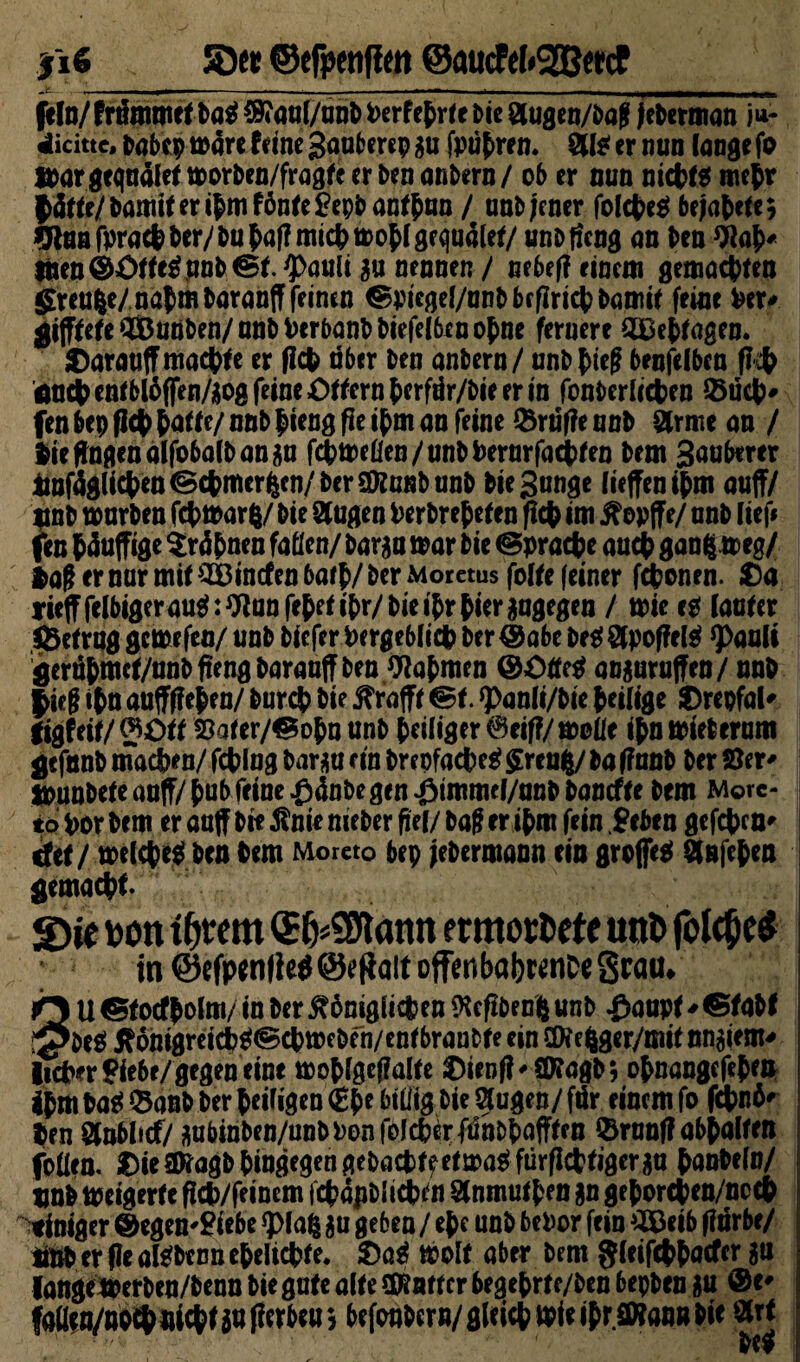 316 Der Gespensten Gauckel-Werck
feln/ krümmet das Maul/und verkehrte die Augen/daß jederman ju-
dicitte, dabey wäre keine Zauberey zu spühren. Als er nun lange so
war gequälet worden/fragte er den andern / ob er nun nichts mehr
hätte/ damit er ihm könte Leyd anthun / und jener solches bejahete;
Nun sprach der/ du hast mich wohl gequälet/ und fieng an den Nah-
men GOttes und St. Pauli zu nennen / nebest einem gemachten
Creutze/ nahm darauff seinen Spiegel/und bestrich damit seine ver-
gifftete Wunden/ und verband dieselben ohne fernere Wehtagen.
Darauff machte er sich über den andern / und hieß denselben sich
auch entblössen/zog seine Ottern herfür/die er in sonderlichen Büch-
sen bey sich hatte/ und hieng sie ihm an seine Brüste und Arme an /
die fingen alsobald an zu schwellen / und verursachten dem Zauberer
unsäglichen Schmertzen/ der Mund und die Zunge lieffen ihm auff/
und wurden schwartz/ die Augen verdreheten sich im Kopffe/ und lief-
fen häuffige Trähnen fallen/ darzu war die Sprache auch gantz weg/
daß er nur mit Wincken bath/ der Moretus solte seiner schonen. Da
rieff selbiger aus: Nun sehet ihr/ die ihr hier zugegen / wie es lauter
Betrug gewesen/ und dieser vergeblich der Gabe des Apostels Pauli
gerühmet/und fieng darauff den Nahmen GOttes anzuruffen / und
hieß ihn auffstehen/ durch die Krafft St. Pauli/die heilige Dreyfal-
tigkeit/ GOtt Vater/Sohn und heiliger Geist/ wolle ihn wieterum
gesund machen/ schlug darzu ein dreyfaches Creutz/ da stund der Ver-
wundete auff/ hub seine Hände gen Himmel/und danckte dem More-
to vor dem er auff die Knie nieder fiel/ daß er ihm sein Leben geschen-
cket / welches den dem Moreto bey jedermann ein grosses Ansehen
gemacht.
Die von ihrem Eh-Mann ermordete und solches
in Gespenstes Gestalt offenbahrende Frau.
ZU Stockholm/ in der Königlichen Residentz und Haupt-Stadt
des Königreichs Schweden/ entbrandte ein Metzger/mit unziem-
licher Liebe/ gegen eine wohlgestalte Dienst-Magd; ohnangesehen
ihm das Band der heiligen Ehe billig die Augen/ für einem so schnö-
den Anblick/ zubinden/und von solcher sündhafften Brunst abhalten
sollen. Die Magd hingegen gedachte etwas fürsichtiger zu handeln/
und weigerte sich/seinem schändlichen Anmuthen zu gehorchen/noch
einiger Gegen-Liebe Platz zu geben / ehe und bevor sein Weib stürbe/
und er sie alsdenn ehelichte. Das wolt aber dem Fleischhacker zu
lange werden/denn die gute alte Mutter begehrte/den beyden zu Ge-
fallen/noch nicht zu sterben; besondern/ gleich wie ihr Mann die Art
des